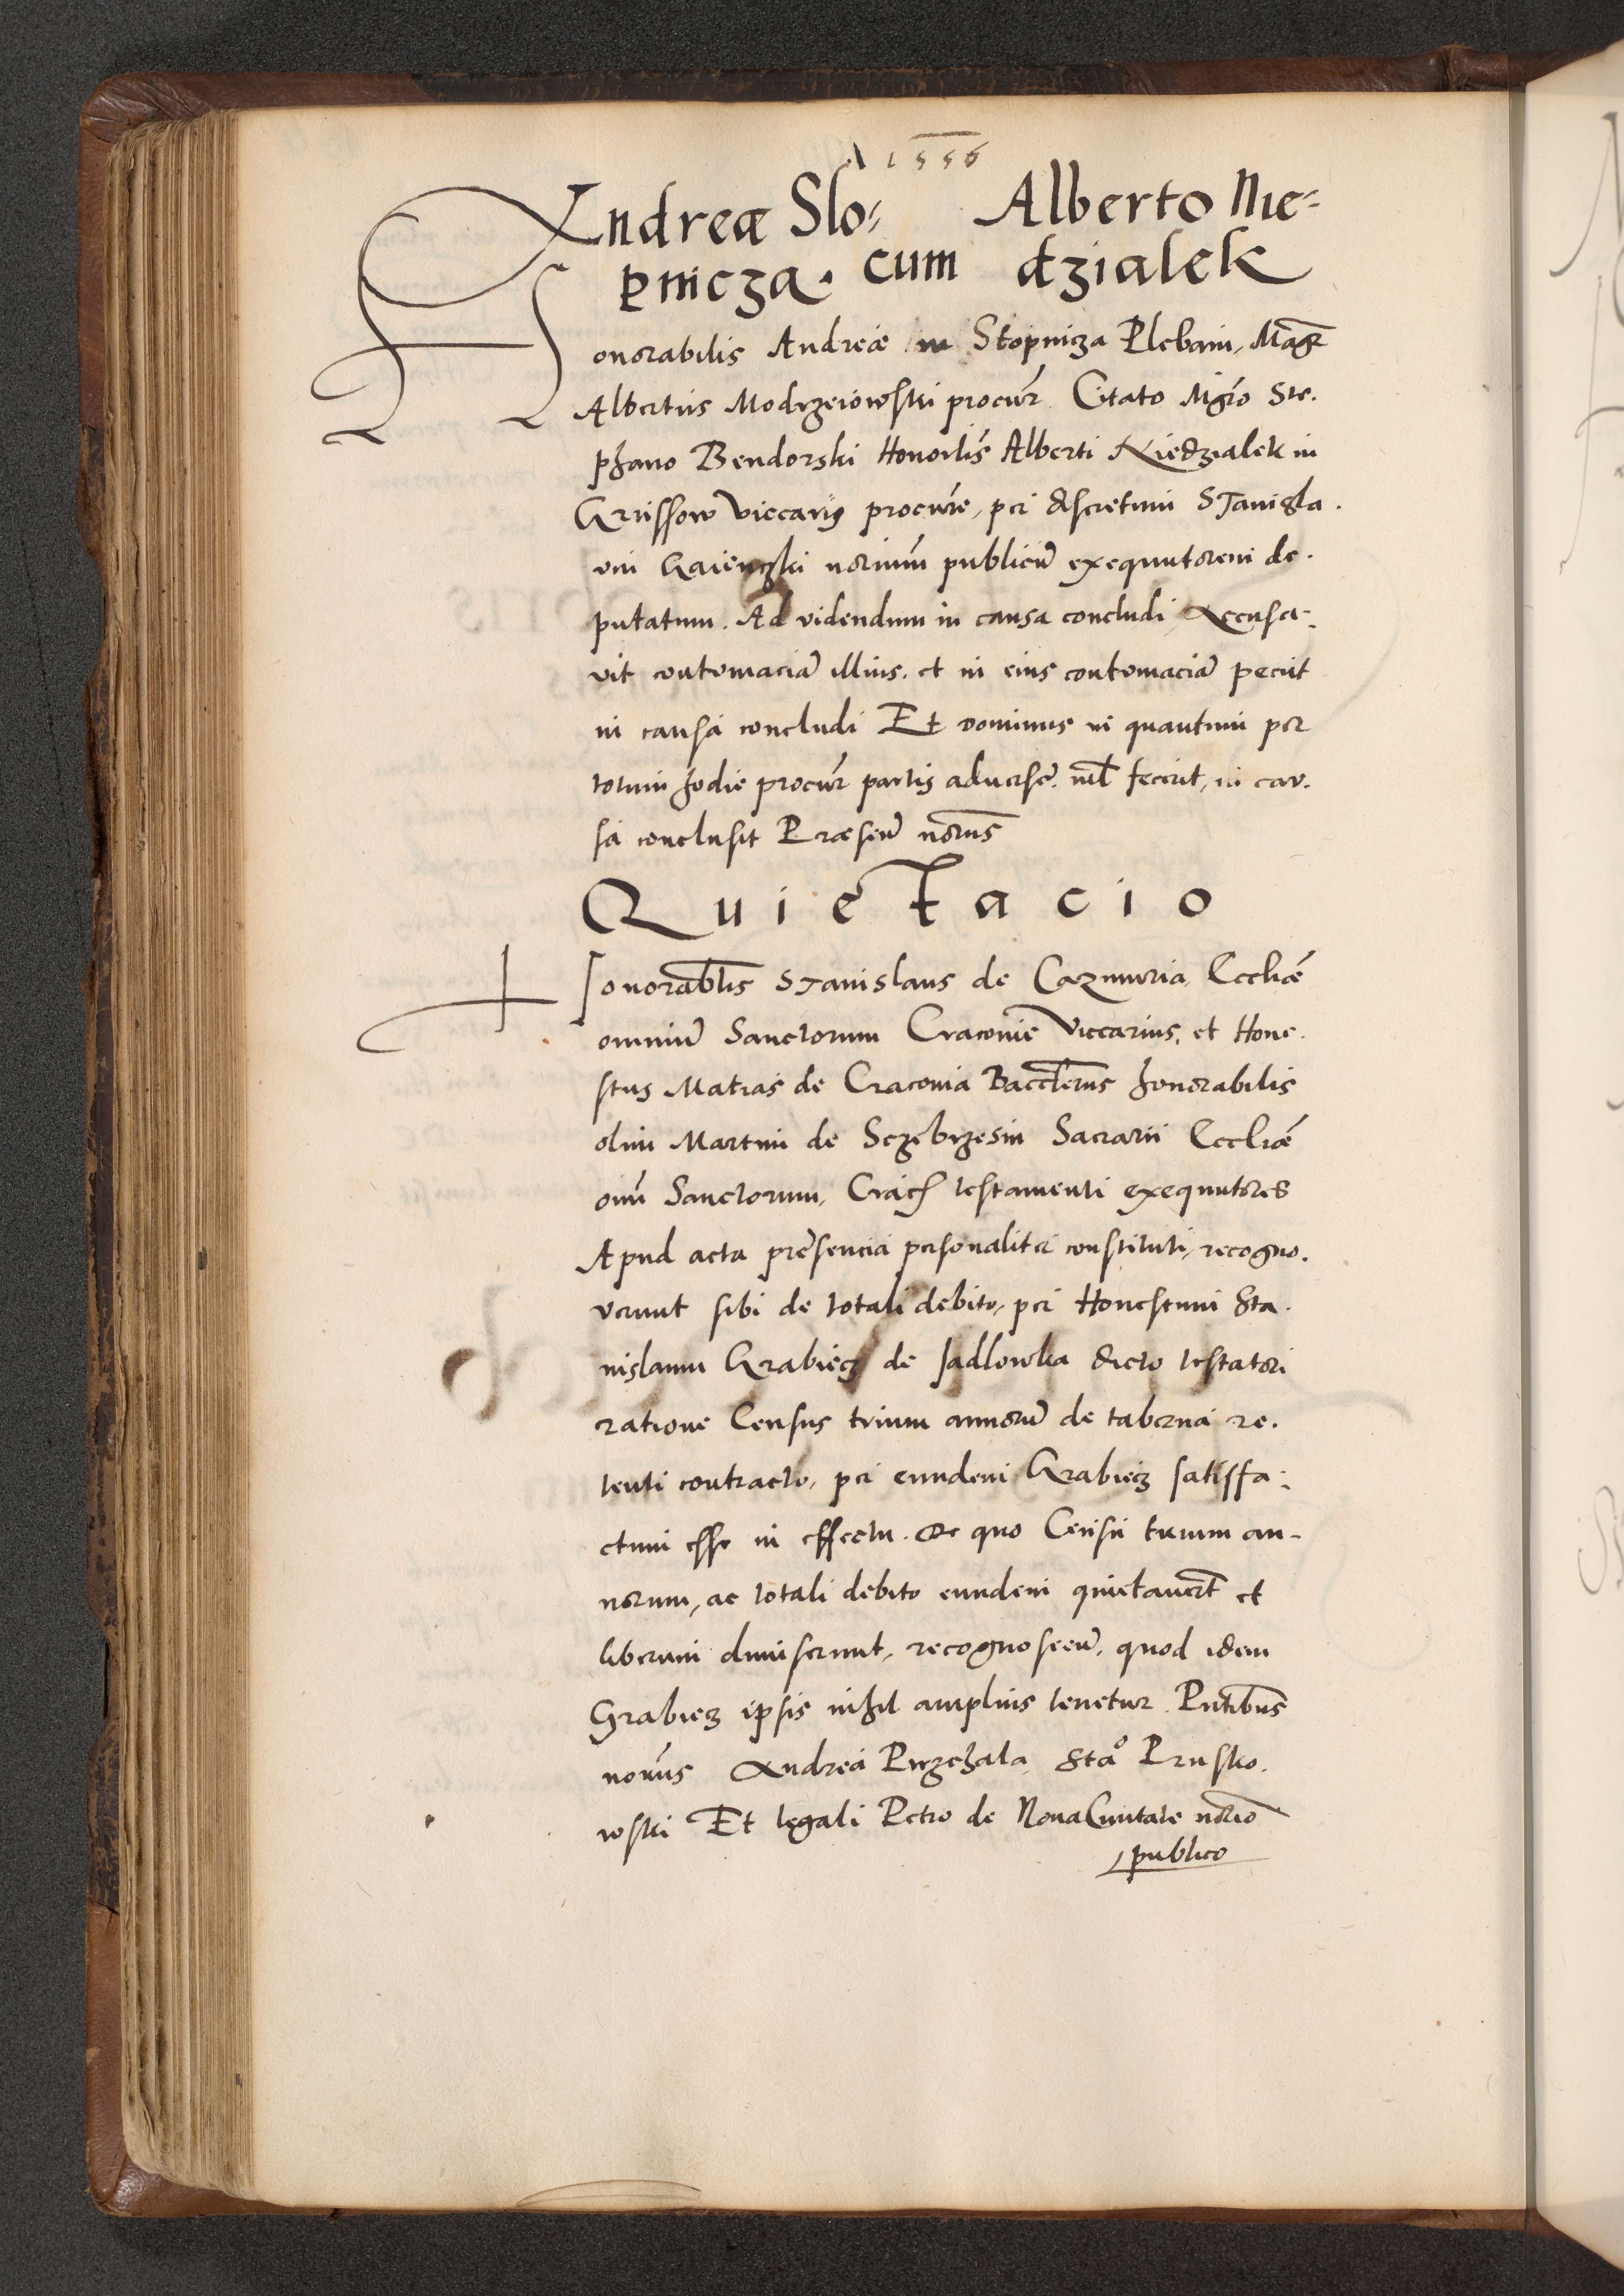 A 1556
Andreæ Slo⸗ Alberto Nie⸗
pnicza. cum dzialek
Honorabilis Andreæ in Stopnicza Plebani, Magr̄
Albertus Modrzeiowski procur̄ Citato Mgr̄o Ste.
phano Bendorski Honorlīs Alberti Niedzialek in
Grussow viccarij procur̄e, per discretum Stanisla.
um Gaienczki nor̄ium publicū exequutorem de.
putatum. Ad videndum in causa concludi Accusa⸗
vit contumaciā illius. et in eius contumaciā peciit
in causa concludi Et dominus in quantum per
totum hodie procur̄ partis aduersē. nil̄ fecerit, in cau.
sa conclusit Præsen̄ nor̄us
Quietacio
Honorabl̄is Stanislaus de Cazimiria Eccliǣ
omniū Sanctorum Cracoviē Viccarius, et Hone.
stus Matias de Cracovia Baccl̄erus honorabilis
olim Martini de Sczebrzesin Sacrarii Eccliǣ
om̄ Sanctorum, Crāc testamenti exequutores
Apud acta presencia personaliter constituti, recogno.
verunt sibi de totali debito, per Honestum Sta.
nislaum Grabiecz de Jadlowka dicto testatori
ratione Census trium annorū de taberna re.
tenti contracto, per eundem Grabiecz satisfa⸗
ctum esse in effectu. De quo Censu trium an-
norum, ac totali debito eundem quietauerт̄ et
liberum dimiserunt, recognoscen̄. quod idem
Grabiecz ipsis nihil amplius tenetur. Pntibus̄
nor̄us Andrea Przchala Stā° Prusko.
wski Et legali Petro de Noua Ciuitate nor̄io
publico